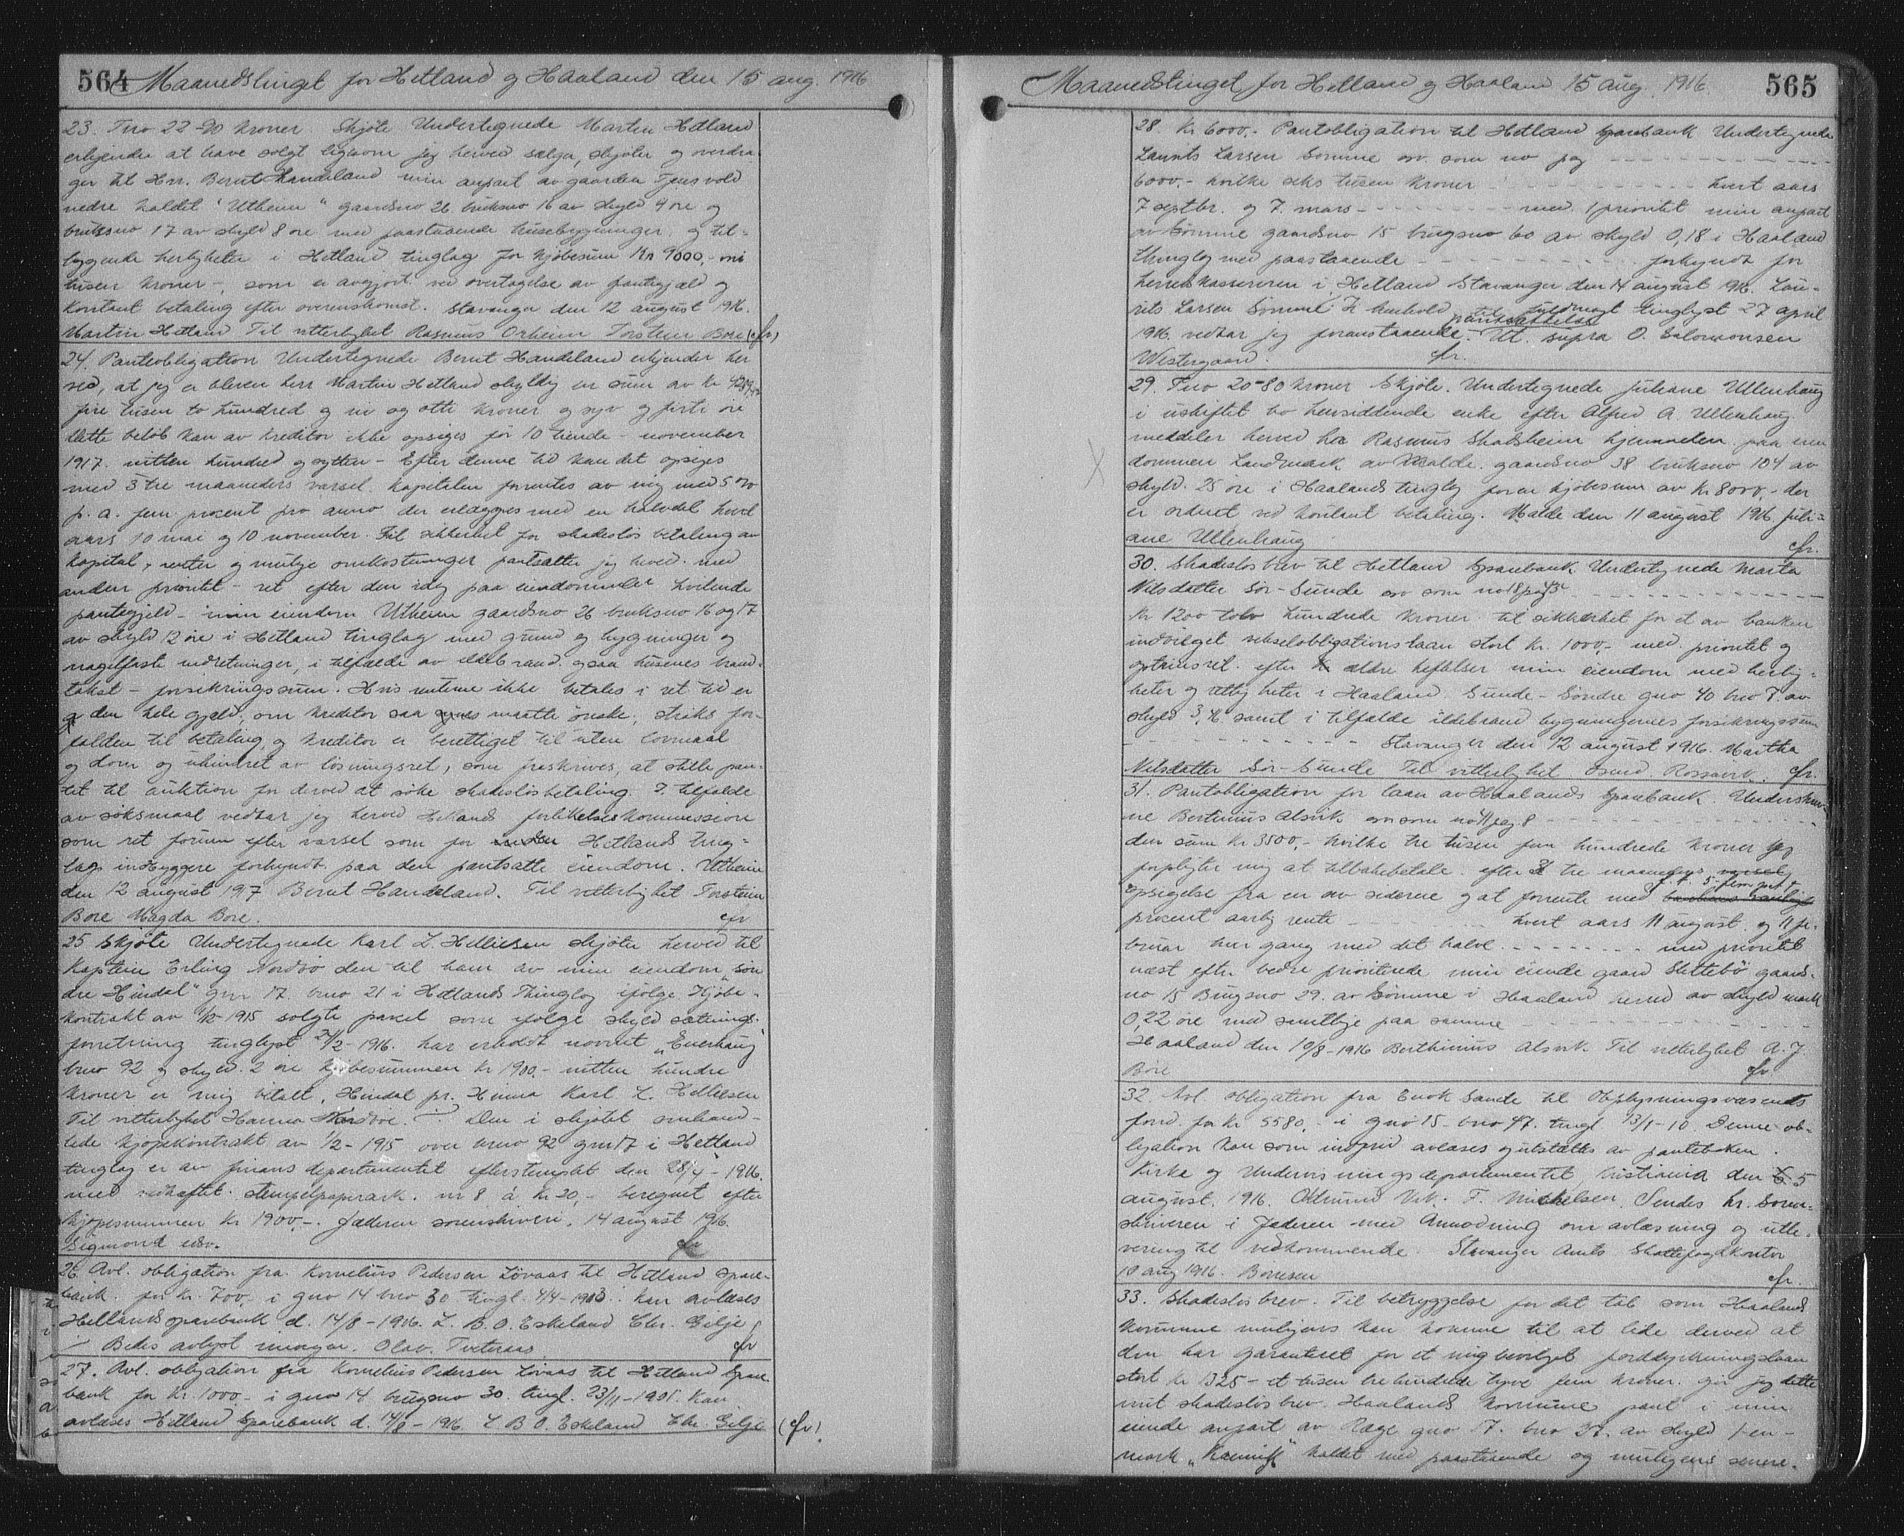 564 Maanedstinget for Hetland og Haaland den 15 aug 1916
23. Tuo 22-90 kroner. Skjöte Undertegnede Martin Hetland
erkjender at have solgt ligesom jeg herved sælger, skjöter og overdra-
ger til Hr. Bernt Handeland min anpart av gaarden Tjensvold
nedre kaldet "Utheim" gaardsno 26 bruksno 16 av skyld 4 öre og
bruksno 17 av skyld 8 öre med paastaaende husebygninger og til-
byggende herligheter i Hetland tinglag for kjöbesum Kr 9000,- ni
tusen kroner -, som er avgjort ved overtagelse av pantegjæld og
kontant betaling efter overenskomst. Stavanger den 12 august 1916.
Martin Hetland Til vitterlighet Rasmus Orheim Torstein Bore (cfr)
24. Panteobligation Undertegnede Bernt Handeland erkjender her
ved, at jeg er bleven herr Martin Hetland skyldig en sum av kr
fire tusen to hundred og ni og otti kroner og syv og firti öre
Dette belöb kan av kreditor ikke opsiges för 10 tiende - november
1917. nitten hundred og sytten - Efter denne tid kan det opsiges
med 3 tre maaneders varsel. Kapitalen forrentes av mig med 5 o/o
p. a. fem procent pro anno der erlægges med en halvdel hvert
aars 10 mai og 10 november. Til sikkerhet for skadeslös betaling av
kapital, renter og mulige omkostninger pantsætter jeg herved med
anden prioritet - ret efter den idag paa eiendommen hvilende
pantegjeld - min eiendom Utheim gaardsno 26 bruksno 16 og 17
av skyld 12 öre i Hetland tinglag med grund og bygninger og
nagelfaste indretninger, i tilfælde av ildebrand ogsaa husenes brand-
takst - forsikringssum. Hvis renterne ikke betales i ret tid er
den hele gjæld, om kreditor saa maatte önske, straks for-
falden til betaling og kreditor er berettiget til uten lovmaal
og dom og uhindret av lösningsret, som foreskrives, at stille pan-
tet til auktion for derved at söke skadeslösbetaling. I tilfælde
av söksmaal vedtar jeg herved Hetlands forlikelseskommission
som ret forum efter varsel som for Hetlands ting-
lags indbyggere forkyndt paa den pantsatte eiendom. Utheim
den 12 august 197 Bernt Handeland. Til vitterlighet Torstein
Bore Magda Bore. cfr
25 Skjöte Undertegnede Karl L. Helliesen skjöter herved til
Kaptein Erling Nordvo den til ham av min eiendom "Sön
dre Hindal" gnr 17. bno 21 i Hetlands Thinglag ifölge Kjöbe-
kontrakt av 1/2-1915 solgte parcel som ifölge skyldsætnings-
forretning tinglyst 21/2-1916. har erholdt navnet "Enerhaug"
bno 92 og skyld. 2 öre Kjöbesummen kr 1900.- nitten hundre
kroner er mig betalt. Hindal pr. Hinna Karl L. Helliesen
Til vitterlighet Hanna Nordvoe. Den i skjötet omhand-
lede kjöpekontrakt av 1/2-1915 over bruno 92 gnr 17 i Hetland
tinglag er av finans departementet efterstemplet den 28/4-1916.
med vedheftet stempelpapirark. nr 8 à kr. 20,- beregnet efter
kjöpesummen kr 1900,-. Jæderen sorenskriveri. 14 august 1916.
Sigmond edv. cfr
26 Avl. obligation fra Kornelius Pedersen Lövaas til Hetland spare-
bank for kr. 700, i gno 14 bno 30 tingl. 4/4-1903. kan avlæses
Hetlands sparebank d. 14/8-1916. L. B. O. Eskeland Chr. Gilje
Bedes avlyst imorgen. Olav. Tveteraas. cfr
27. Avl. obligation fra Kornelius Pedersen Lövaas til Hetland Spare-
bank for kr. 1000.- i gno 14 brugsno 30. tingl. 23/11-1901. Kan
avlæses Hetland Sparebank d. 14/8-1916. L B O. Eskeland Chr. Gilje (cfr).
Maanedstinget for Hetland og Haaland 15 aug. 1916. 565
28. Kr 6000.- Pantobligation til Hetland Sparebank Undertegnede
Laurits Larsen Sömme osv. som no pag
6000,- hvilke seks tusen kroner hvert aars
7 septbr. og 7. mars - med 1 prioritet min anpart
av Sömme gaardsno 15 brugsno 60 av skyld 0,18 i Haaland
thinglag med paastaaende forkyndt for
herredskassereren i Hetland Stavanger den 14 august 1916. Lau-
rits Larsen Sömme I henhold til fuldmagt tinglyst 27 april
1916. vedtar jeg foranstaaende pantsættelse. Ut. supra O. Salomonsen
Westergaard. cfr.
29. Tuo 20-80 kroner Skjöte. Undertegnede Juliane Ullenhaug
i uskiftet bo hensiddende enke efter Alfred A. Ullenhaug.
meddeler herved hr Rasmus Skadsheim hjemmelen paa eien
dommen Landmark av Malde. gaardsno 38 bruksno 104 av
skyld. 25 öre i Haalands tinglag for en kjöbesum av kr 8000,- der
er ordnet ved kontant betaling. Malde den 11 august 1916. Juli-
ane Ullenhaug cfr.
30. Skadeslösbrev til Hetland Sparebank. Undertegnede Marta
Nilsdatter Sör-Sunde osv som no 18 pag
Kr 1200 tolv hundrede kroner til sikkerhet for et av banken
indvilget vekselobligationslaan stort kr. 1000,- med prioritet og
optrinsret efter ældre heftelser min eiendom med herlig-
heter og rettigheter i Haaland. Sunde-Söndre gno 40 bno 7 av
skyld 3, samt i tilfælde ildebrand bygningernes forsikringssum
Stavanger den 12 august 1916. Martha
Nilsdatter Sör-Sunde Til vitterlighet cfr.
31. Pantobligation for laan av Haalands Sparebank. Underskrev-
ne Bertinius Alsvik osv som no 11 pag. 8
den sum kr 3500,- hvilke tre tusen fem hundrede kroner jeg
forpligter mig at tilbakebetale efter 3 tre maaneders
opsigelse fra en av siderne og at forrente med
procent aarlig rente hvert aars 11 august og 11 fe-
bruar hver gang med det halve. med prioritet
næst efter bedre prioriterede min eiende gaard Slettebö gaards-
no 15 Brugsno 29. av Sömme i Haaland herred av skyld mark
0,22 öre med samtlige paa samme
Haaland den 10/8-1916 Berthinius Alsvik Til vitterlighet A. J.
Bore cfr
32. Avl. obligation fra Enok Sande til Oplysningsvæsenets
fond for kr 5580,- i gno 15- bno 47. tingl 13/1-10. Denne ob-
ligation kan som indfriet avlæses og utslettes av pantebøken.
Kirke og Undervisningsdepartementet, Kristiania den 5
august. 1916. T. Michelsen. Sendes hr. Soren-
skriveren i Jæderen med Anmodning om avlæsning og utle-
vering til vedkommende. Stavanger Amts Skattefogdkontor
10 aug 1916. Börresen cfr.
33. Skadeslösbrev. Til betryggelse for det tab som Haalands
kommune muligens kan komme til at lide derved at
den har garanteret for et mig bevilget jorddyrkningslaan
stort kr 1325 - et tusen tre hundrede tyve fem kroner. gir jeg dette
mit skadeslösbrev. Haalands kommune pant i min
eiende anpart av Ræge gno 17. bno 27. av skyld 1-en-
mark kaldet med paastaaende og muligens senere.